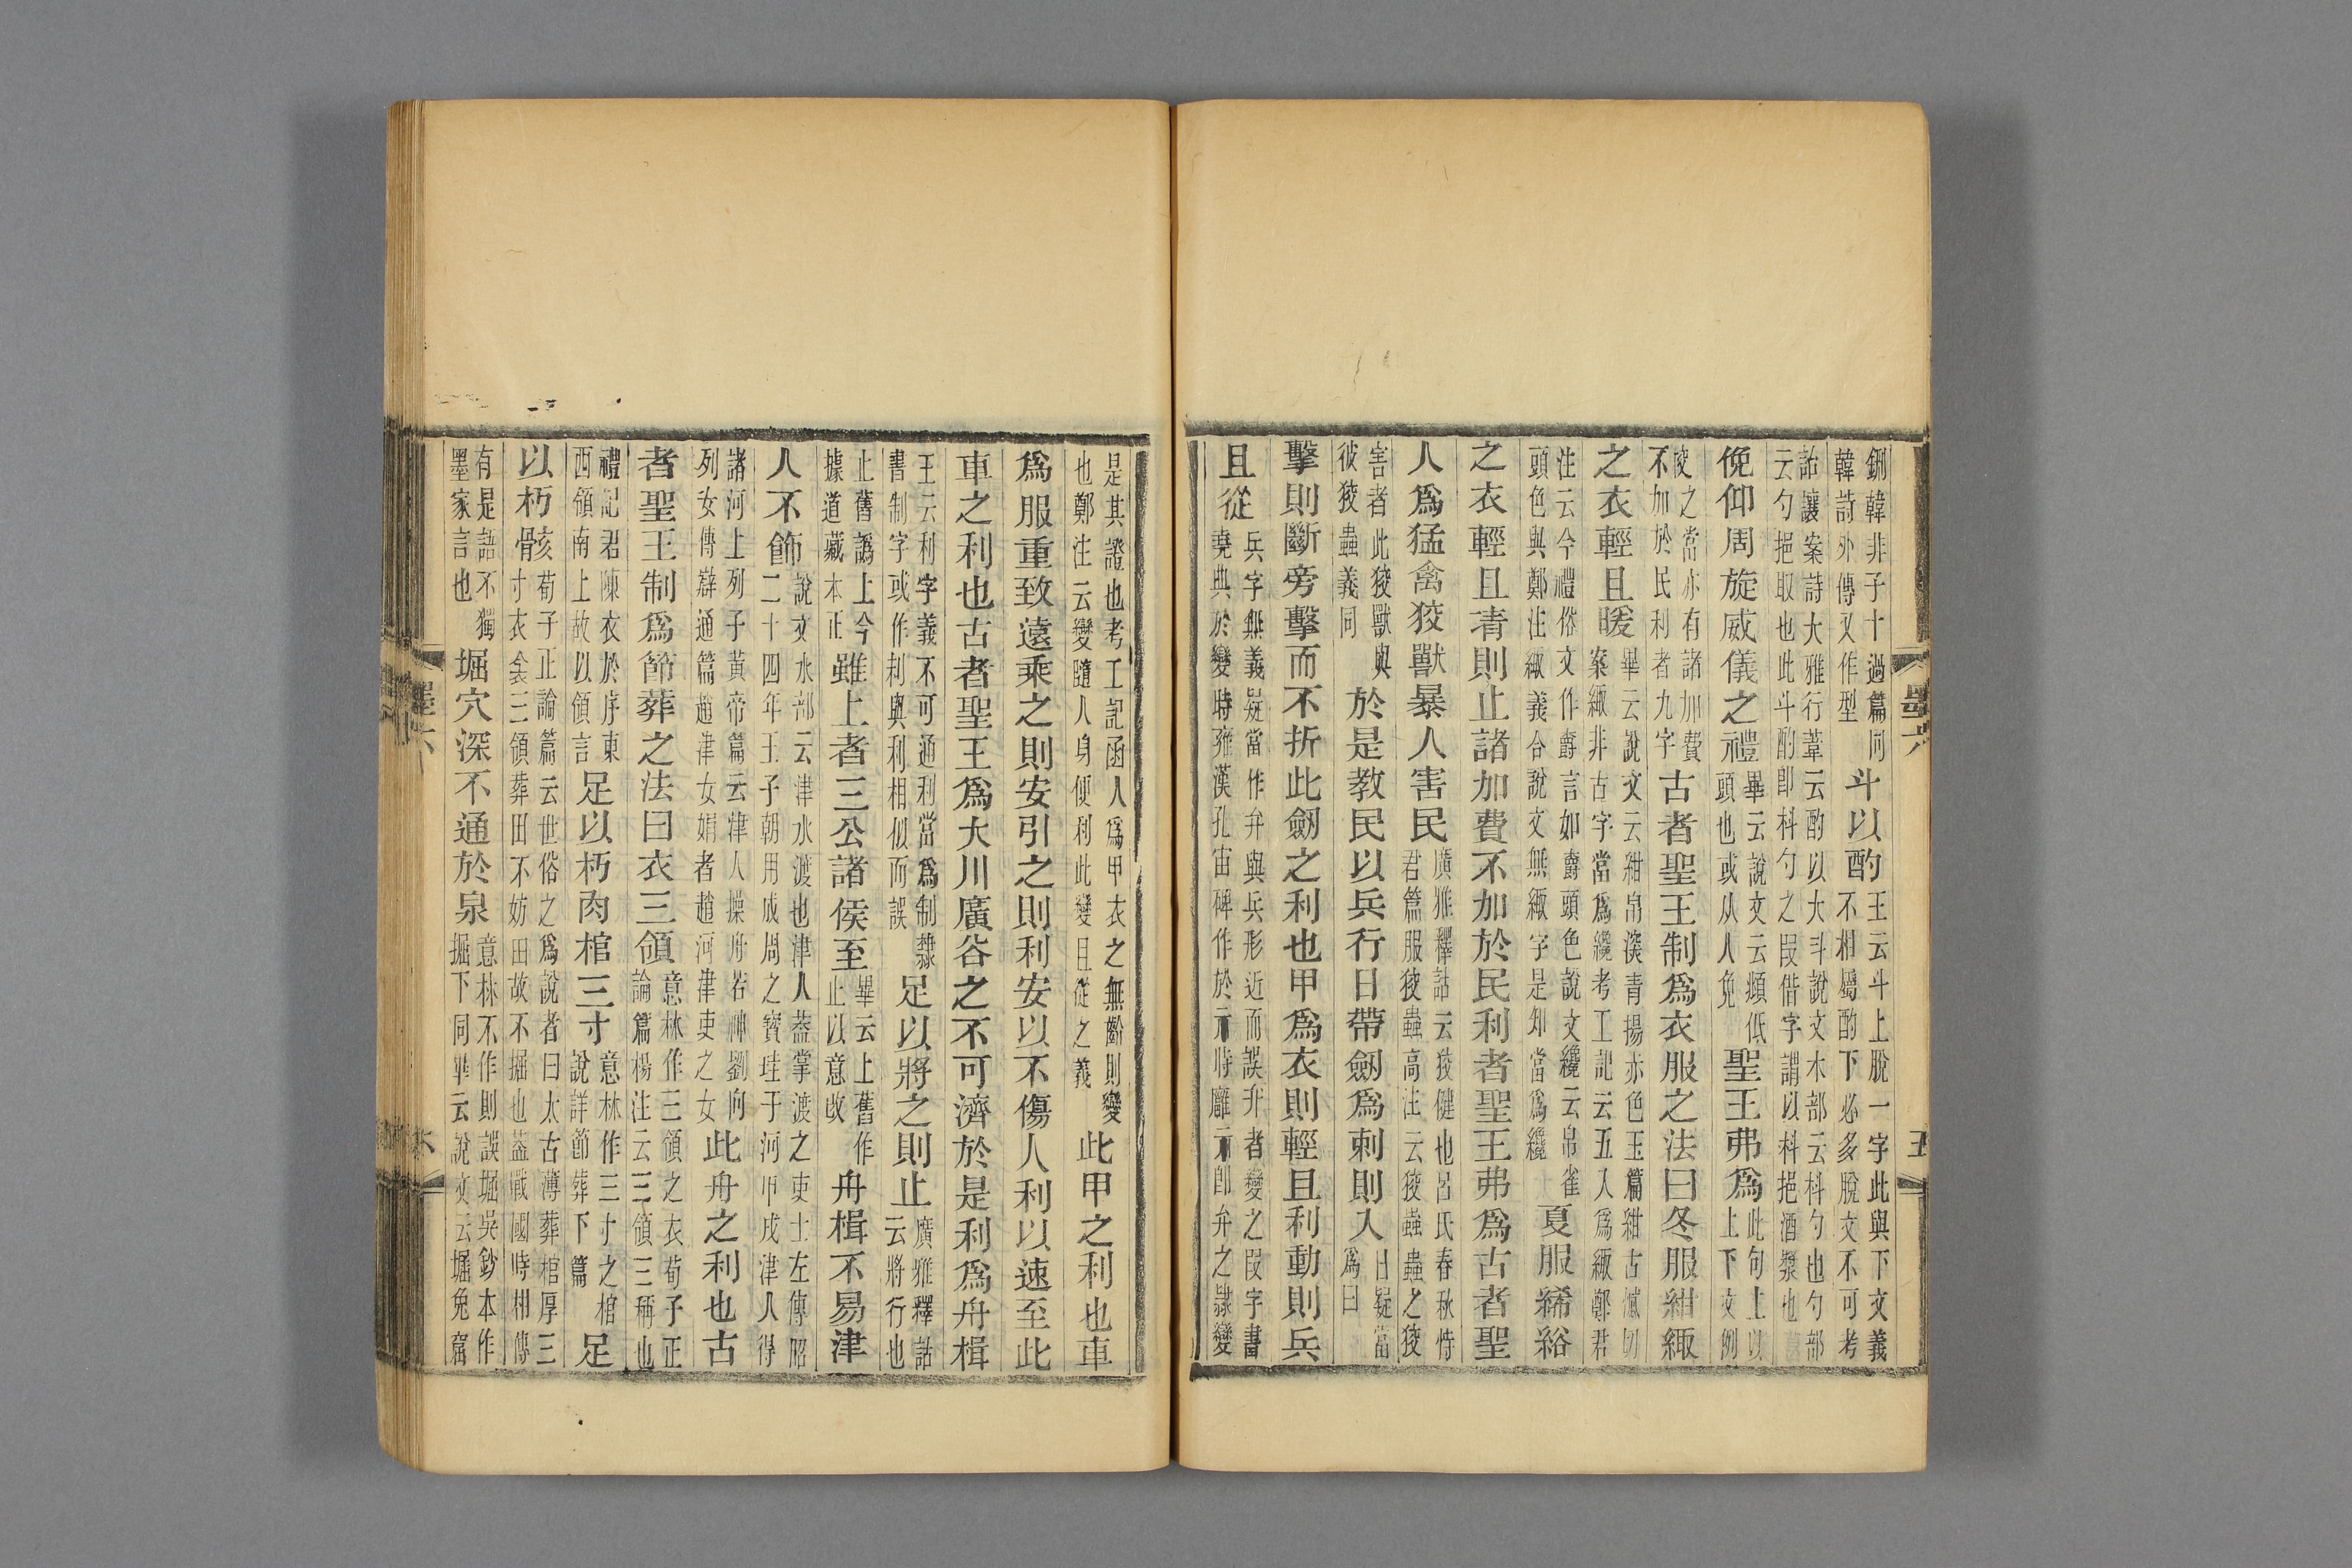 鉶韓非子十過篇同
韓詩外傳又作型
斗以酌
王云斗上脫一字此與下文義
不相屬酌下必多脫文不可考
詒讓案詩大雅行葦云酌以大斗說文木部云枓勺也勺部
云勺挹取也此斗酌卽枓勺之叚借字謂以枓挹酒漿也
俛仰周旋威儀之禮
畢云說文云頫低
頭也或从人免
聖王弗爲
此句上以
上下文例
校之當亦有諸加費
不加於民利者九字
古者聖王制爲衣服之法曰冬服紺緅
之衣輕且暖
畢云說文云紺帛深青揚赤色玉篇紺古憾切
案緅非古字當爲纔考工記云五入爲緅鄭君
注云今禮俗文作爵言如爵頭色說文纔云帛雀
頭色與鄭注緅義合說文無緅字是知當爲纔
夏服絺綌
之衣輕且凊則止諸加費不加於民利者聖王弗爲古者聖
人爲猛禽狡獸暴人害民
廣雅釋詁云狡健也呂氏春秋恃
君篇服狡蟲高注云狡蟲蟲之狡
害者此狡獸與
彼狡蟲義同
於是教民以兵行日帶劒爲刺則入
日疑當
爲曰
擊則斷旁擊而不折此劒之利也甲爲衣則輕且利動則兵
且從
兵字無義疑當作弁與兵形近而誤弁者變之叚字書
堯典於變時雍漢孔宙碑作於亓時廱亓卽弁之隷變
是其證也考工記函人爲甲衣之無齘則變
也鄭注云變隨人身便利此變且從之義
此甲之利也車
爲服重致遠乘之則安引之則利安以不傷人利以速至此
車之利也古者聖王爲大川廣谷之不可濟於是利爲舟楫
王云利字義不可通利當爲制隸
書制字或作利與利相似而誤
足以將之則止
廣雅釋詁
云將行也
止舊譌上今
據道藏本正
雖上者三公諸侯至
畢云上舊作
止以意改
舟楫不易津
人不飾
說文水部云津水渡也津人葢掌渡之吏士左傳昭
二十四年王子朝用成周之寶珪于河甲戌津人得
諸河上列子黃帝篇云津人操舟若神劉向
列女傳辯通篇趙津女娟者趙河津吏之女
此舟之利也古
者聖王制爲節葬之法曰衣三領
意林作三領之衣荀子正
論篇楊注云三領三稱也
禮記君陳衣於序東
西領南上故以領言
足以朽肉棺三寸
意林作三寸之棺
說詳節葬下篇
足
以朽骸
荀子正論篇云世俗之爲說者曰太古薄葬棺厚三
寸衣衾三領葬田不妨田故不掘也葢戰國時相傳
有是語不獨
墨家言也
堀穴深不通於泉
意林不作則誤堀吳鈔本作
掘下同畢云說文云堀兔窟
墨六
五